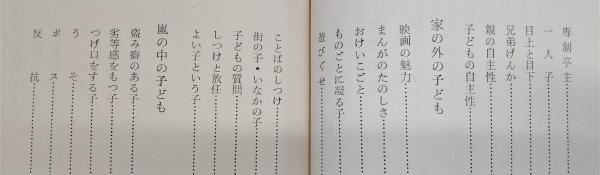 専制亭主
一人子
目上と目下
兄弟げんか
親の自主性
子どもの自主性
家の外の子ども
映画の魅力
まんがのたのしさ
おけいこごと
ものごとに凝る子
遊びぐせ
ことばのしつけ
街の子・いなかの子
子どもの質問
しつけと放任
よい子という子
嵐の中の子ども
盗み癖のある子
劣等感をもつ子
つげ口をする子
うそ
ボス
反抗